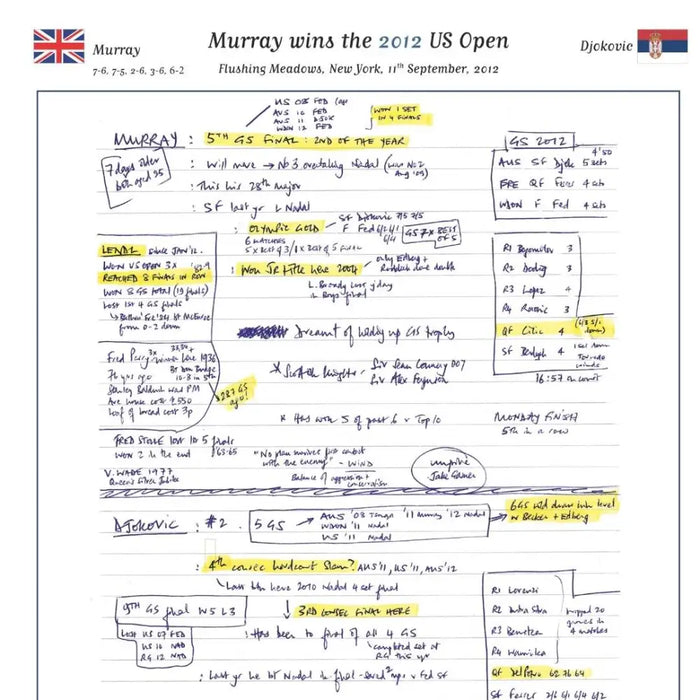 Murray wins the 2012 US Open
Murray
7-6, 7-5, 2-6, 3-6, 6-2
Flushing Meadows, New York, 11th September, 2012
Djokovic
US 08 FED
AUS 10 FED
AUS 11 DJOK
WDON 12 FED
WON 1 SET
IN 4 FINALS
MURRAY : 5TH GS FINAL : 2ND OF THE YEAR
7 days older
both aged 25
: Will move → No 3 overtaking Nadal
Aug '09)
: This his 28th major
: SF last yr L Nadal
: OLYMPIC GOLD
SF Djokovic 7/5 7/5
F Fed 6/2 6/1
6/4
GS 7 x BEST
OF 5
: Won JR title here 2004
only Edberg +
Roddick done double
L. Broady lost yday
in Boys final
Dream of holding up GS trophy
* Scottish Knights - Sir Sean Connery 007
Sir Alex Ferguson
* Has won 5 of past 6 v Top 10
GS 2012
4'50
AUS SF Djok 5 sets
FRE QF Ferrer 4 sets
WDON F Fed 4 sets
R1 Bogomolov 3
R2 Dodig 3
R3 Lopez 4
R4 Raonic 3
QF Cilic 4
down)
SF Berdych 4
1 set down
Tornado
winds
16:57 on court
MONDAY FINISH
5th in a row
LENDL since JAN '12.
WON US OPEN 3x
REACHED 8 FINALS IN ROW
WON 8 GS total (19 finals)
Lost 1st 4 GS finals
from 0-2 down
Fred Perry 3x winner here 1936
76 yrs ago
Bt Don Budge
10-8 in 5th
Stanley Baldwin was PM
Ave house cost £550
Loaf of bread cost 3p
287 GS
ago!
FRED STOLLE lost 1st 5 finals
WON 2 in the end
'63-65
V. WADE 1977
Queen's Silver Jubilee
"No plan survives first contact
with the enemy" - WIND
Balance of aggression +
conservatism
umpire
Jake Garner
DJOKOVIC : #2.
5 GS →
AUS '08 Tsonga '11 Murray '12 Nadal
WDON '11 Nadal
US '11 Nadal
6 GS wd draw him level
w Becker + Edberg
: 4th consec hardcourt Slam? AUS'11, US'11, AUS'12
Last btn here 2010 Nadal 4 set final
9TH GS final W5 L3
LOST US 07 FED
US 10 NAD
RG 12 NAD
3RD CONSEC FINAL HERE
: Has been to final of all 4 GS
completed set at
RG this yr
: Last yr he bt Nadal in final - saved 2 mps v Fed SF
R1 Lorenzi
R2 Dutra Silva
R3 Benneteau
R4 Wawrinka
dropped 20
games in
4 matches
QF DelPotro 62 76 64
SF Ferrer 2/6 6/1 6/4 6/2